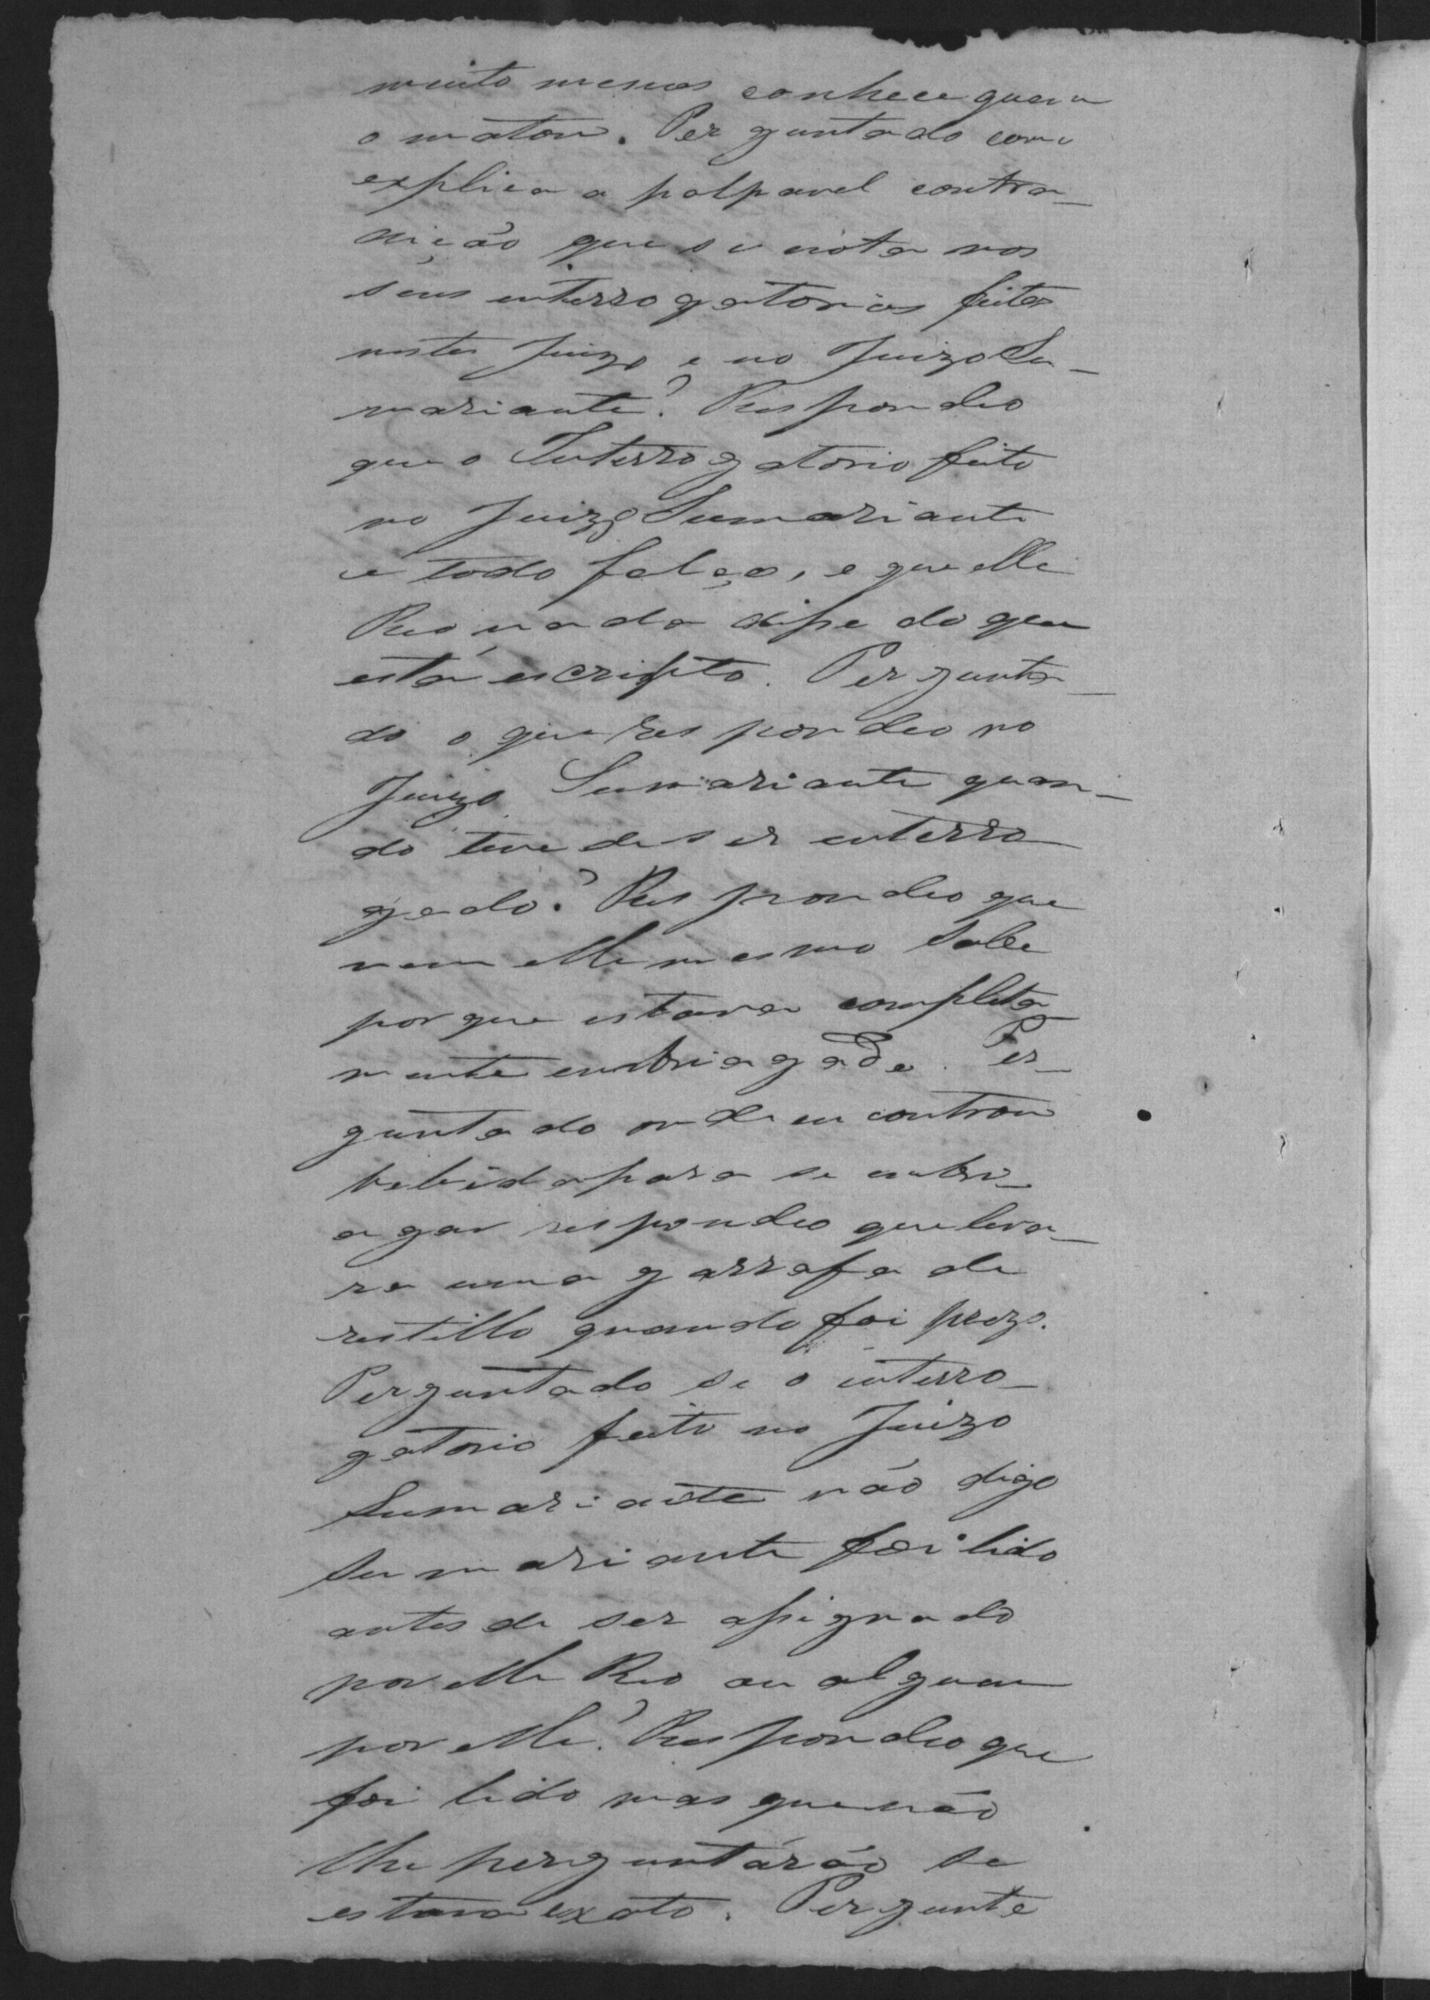 muito menos conhece quem
o matou. Perguntado como
explica a palpavel contra-
dição que se nota nos
seus interrogatorios feitos
neste Juizo e no Juizo Su-
mariante? Respondeo
que o Interrogatorio feito
no Juizo Sumariante
é todo falço, e que elle
Reo nada disse do que
está escripto. Pergunta-
do o que respondeo no
Juizo Sumariante quan-
do teve de ser interro
gado? Respondeo que
nem elle mesmo sabe
por que estava completa
mente embriagado. Per-
guntado onde encontrou
bebida para se embri-
agar respondeo que leva-
ra uma garrafa de
restillo quando foi prezo.
Perguntado se o interro-
gatorio feito no Juizo
Sumariante não digo
Sumariante foi lido
antes de ser assignado
por elle Reo ou alguem
por elle? Respondeo que
foi lido mas que não
lhe perguntárão se
estava exato. Pergunta